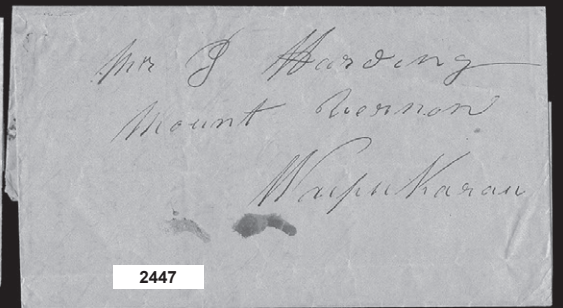 Mr J Harding
Mount Vernon
Waipukarau
2447